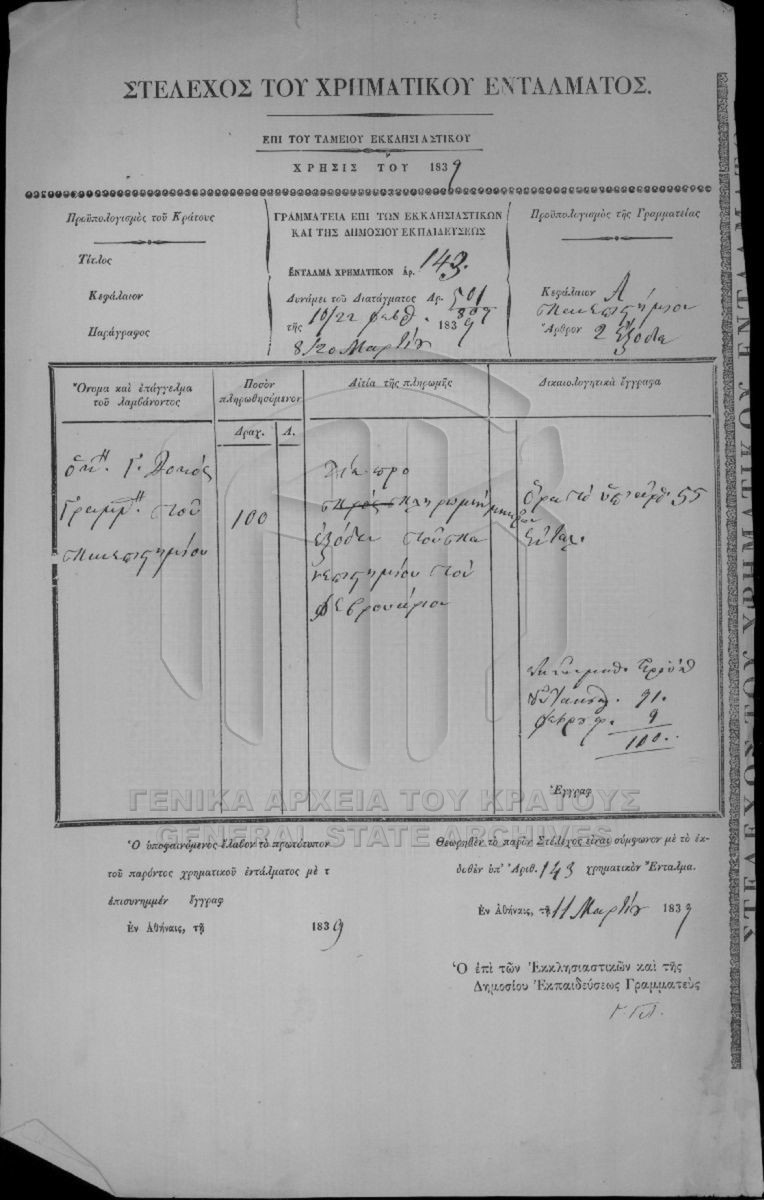 ΣΤΕΛΕΧΟΣ ΤΟΥ ΧΡΗΜΑΤΙΚΟΥ ΕΝΤΑΛΜΑΤΟΣ.
ΕΠΙ ΤΟΥ ΤΑΜΕΙΟΥ ΕΚΚΛΗΣΙΑΣΤΙΚΟΥ
ΧΡΗΣΙΣ ΤΟΥ 1839
Προϋπολογισμὸς τοῦ Κράτους
Τίτλος
Κεφάλαιον
Παράγραφος
ΓΡΑΜΜΑΤΕΙΑ ΕΠΙ ΤΩΝ ΕΚΚΛΗΣΙΑΣΤΙΚΩΝ
ΚΑΙ ΤΗΣ ΔΗΜΟΣΙΟΥ ΕΚΠΑΙΔΕΥΣΕΩΣ
ΕΝΤΑΛΜΑ ΧΡΗΜΑΤΙΚΟΝ ἀρ. 143.
Δυνάμει τοῦ Διατάγματος Ἀρ. 501
τῆς 10/22 Φεβρ. 1839
8/20 Μαρτίου
Προϋπολογισμὸς τῆς Γραμματείας
Κεφάλαιον Α
Πανεπιστήμιον
Ἄρθρον 2 ἔξοδα
Ὄνομα καὶ ἐπάγγελμα
τοῦ λαμβάνοντος
Ποσὸν
πληρωθησόμενον
Αἰτία τῆς πληρωμῆς
Δικαιολογητικὰ ἔγγραφα
Δραχ. Λ.
Γραμμ. τοῦ
Πανεπιστημίου
100
Διὰ προ
πληρωμὴν
ἐξόδων τοῦ Πα
νεπιστημίου τοῦ
Φεβρουάριον
Ὅρα τὸ ὑπ' ἀριθ. 55
Ενταλ.
91.
9
100..
Ἔγγραφ
ΓΕΝΙΚΑ ΑΡΧΕΙΑ ΤΟΥ ΚΡΑΤΟΥΣ
GENERAL STATE ARCHIVES
Ὁ ὑποφαινόμενος ἔλαβον τὸ πρωτότυπον
τοῦ παρόντος χρηματικοῦ ἐντάλματος μὲ τ
ἐπισυνημμέν ἔγγραφ
Ἐν Ἀθήναις, τῇ 1839
Θεωρηθὲν τὸ παρὸν Στέλεχος εἶναι σύμφωνον μὲ τὸ ἐκ-
δοθὲν ὑπ' Ἀριθ. 143 χρηματικὸν Ἔνταλμα.
Ἐν Ἀθήναις, τῇ 11 Μαρτίου 1839
Ὁ ἐπὶ τῶν Ἐκκλησιαστικῶν καὶ τῆς
Δημοσίου Ἐκπαιδεύσεως Γραμματεὺς
ΣΤΕΛΕΧΟΣ ΤΟΥ ΧΡΗΜΑΤΙΚΟΥ ΕΝΤΑΛΜ